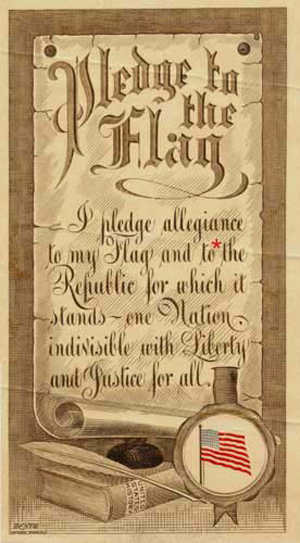 Pledge to
the
Flag
I pledge allegiance
to my Flag and to*the
Republic for which it
stands - one Nation,
indivisible with Liberty
and Justice for all.
UNITED
STATES
HISTORY